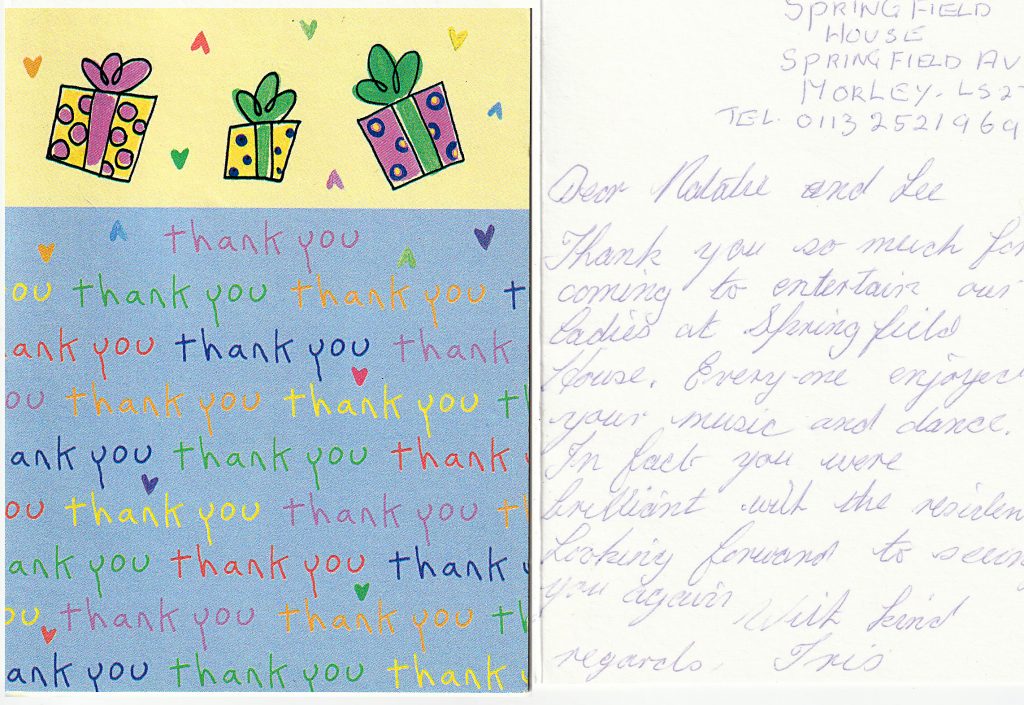 thank you
ou thank you thank you t
ank you thank you thank
ou thank you thank you th
ank you thank you thank
ou thank you thank you th
ank you thank you thank
ou thank you thank you th
ank you thank you thank you
SPRINGFIELD
HOUSE
SPRINGFIELD AV
MORLEY. LS2
TEL. 0113 2521969
Dear Natalie and Lee
Thank you so much for
coming to entertain our
Ladies at Springfield
House. Every-one enjoyed
your music and dance.
In fact you were
brilliant with the residen
Looking forward to seein
you again
With kind
regards. Iris